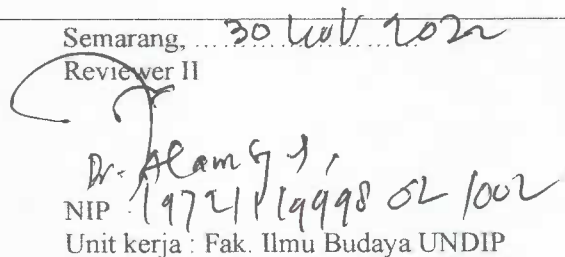 Semarang, 30 Nov 2022
Reviewer II
Dr. Alam
NIP 19721119998 02 1002
Unit kerja : Fak. Ilmu Budaya UNDIP